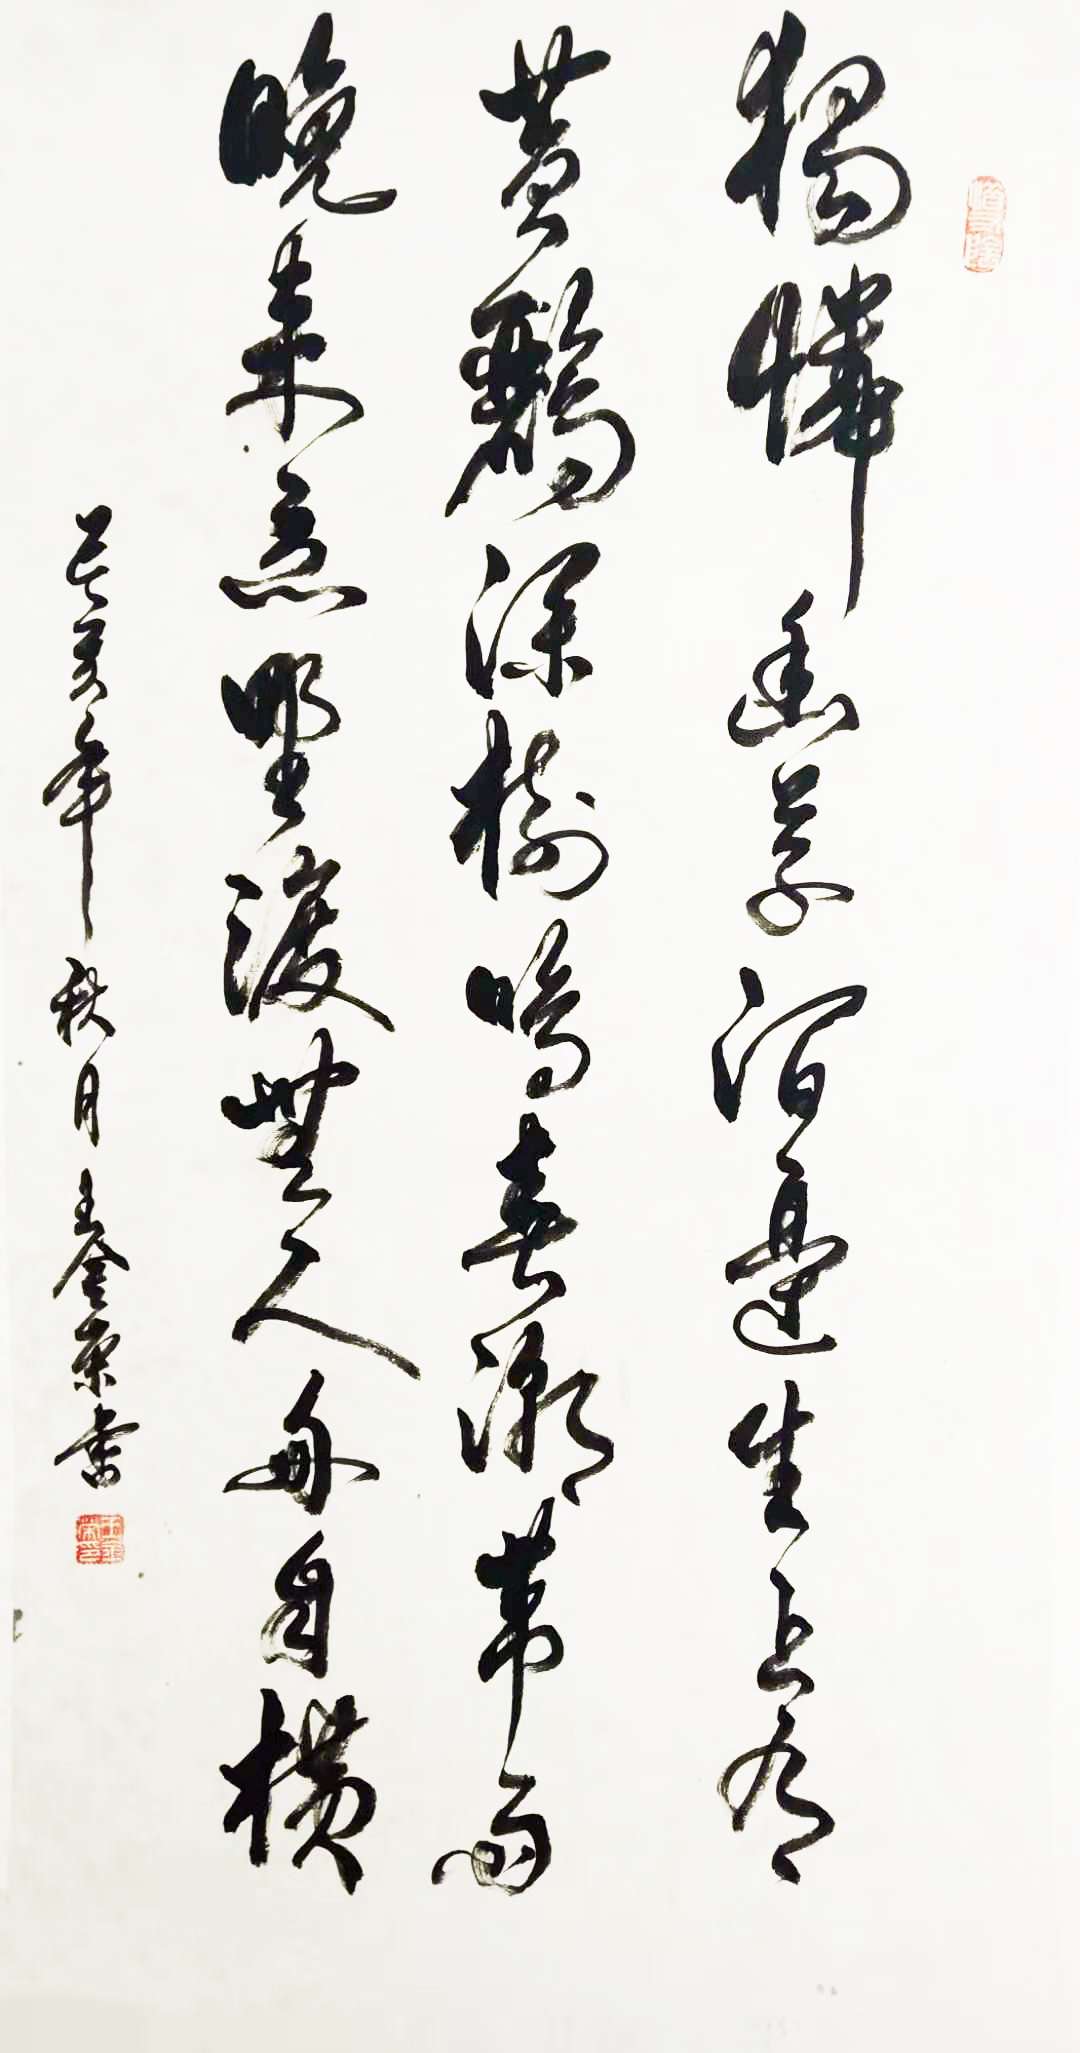 獨憐幽草澗邊生上有
黃鸝深樹鳴春潮帶雨
晚來急野渡無人舟自橫
己亥年秋月王金榮書